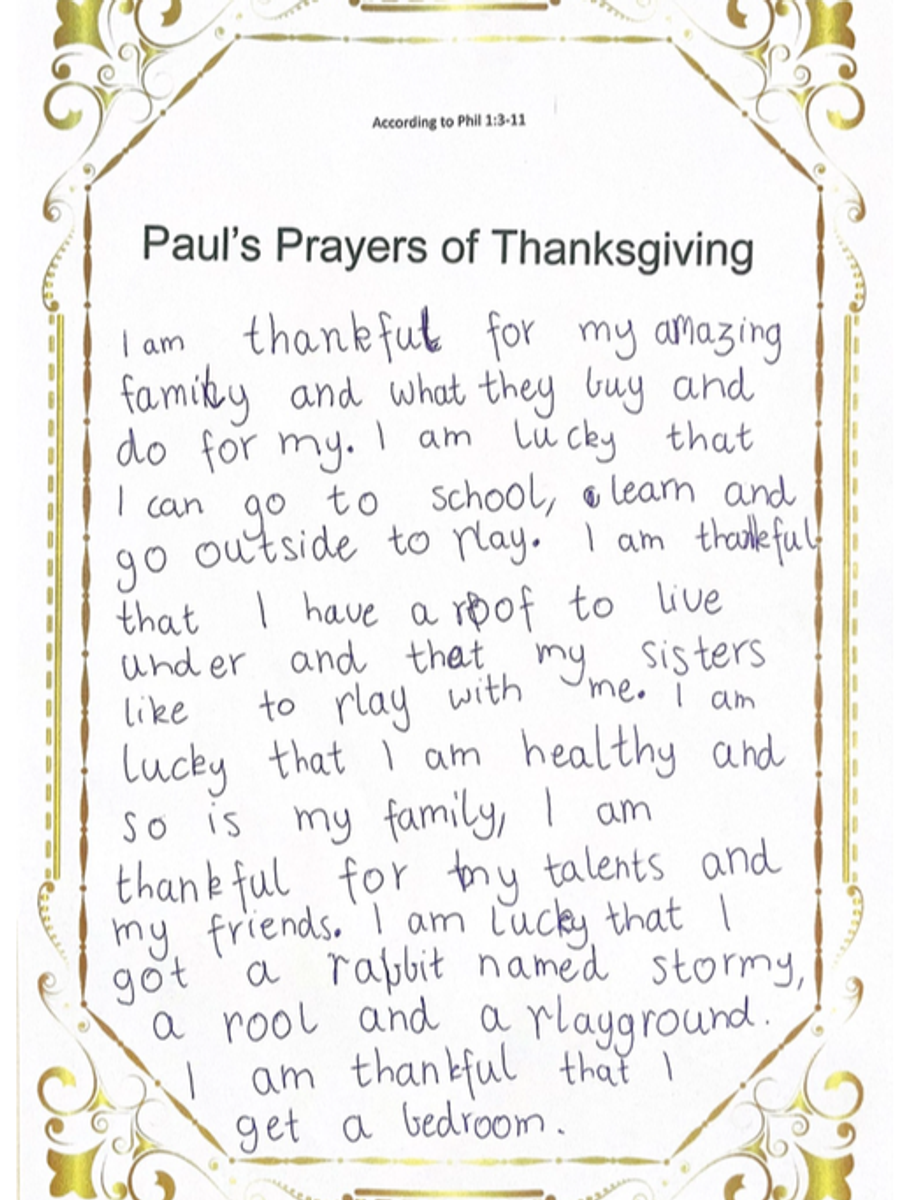 According to Phil 1:3-11
Paul's Prayers of Thanksgiving
I am thankful for my amazing
family and what they buy and
do for my. I am lucky that
I can go to school, learn and
go outside to play. I am thankful
that I have a roof to live
under and that my sisters
like to play with me. I am
lucky that I am healthy and
so is my family, I am
thankful for my talents and
my friends. I am lucky that I
got a rabbit named stormy,
a pool and a playground.
I am thankful that I
get a bedroom.